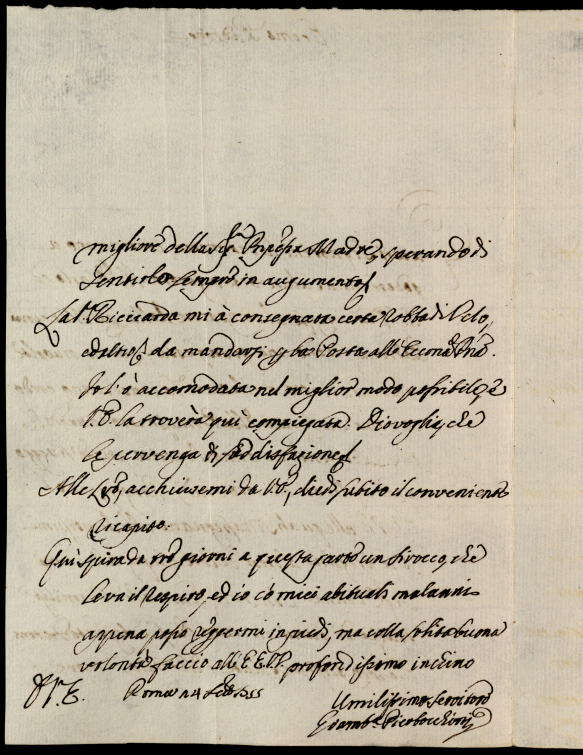 migliore della Sigra Prpessa Madre, sperando di
sentirlo sempre in augumento
La Sra Ricciarda mi à consegnata certa robba di Velo,
ed altro, da mandarsi per la Posta all'Eccma
Io l'ò accomodata nel miglior modo possibile, e
V.E. la troverà qui compiegata. Dio voglia, che
le provenga di soddisfazione
Alle Lre, acchiusemi da V.E., diedi subito il conveniente
ricapito.
Qui spira da tre giorni a questa parte un Sirocco, che
leva il respiro, ed io co' miei abituali malanni
appena posso reggermi in piedi, ma colla solita buona
volontà faccio all'EE.VV. profondissimo inchino
Di V.E. Roma 4
Umilissimo Servitore
Giambta Pierbocchini